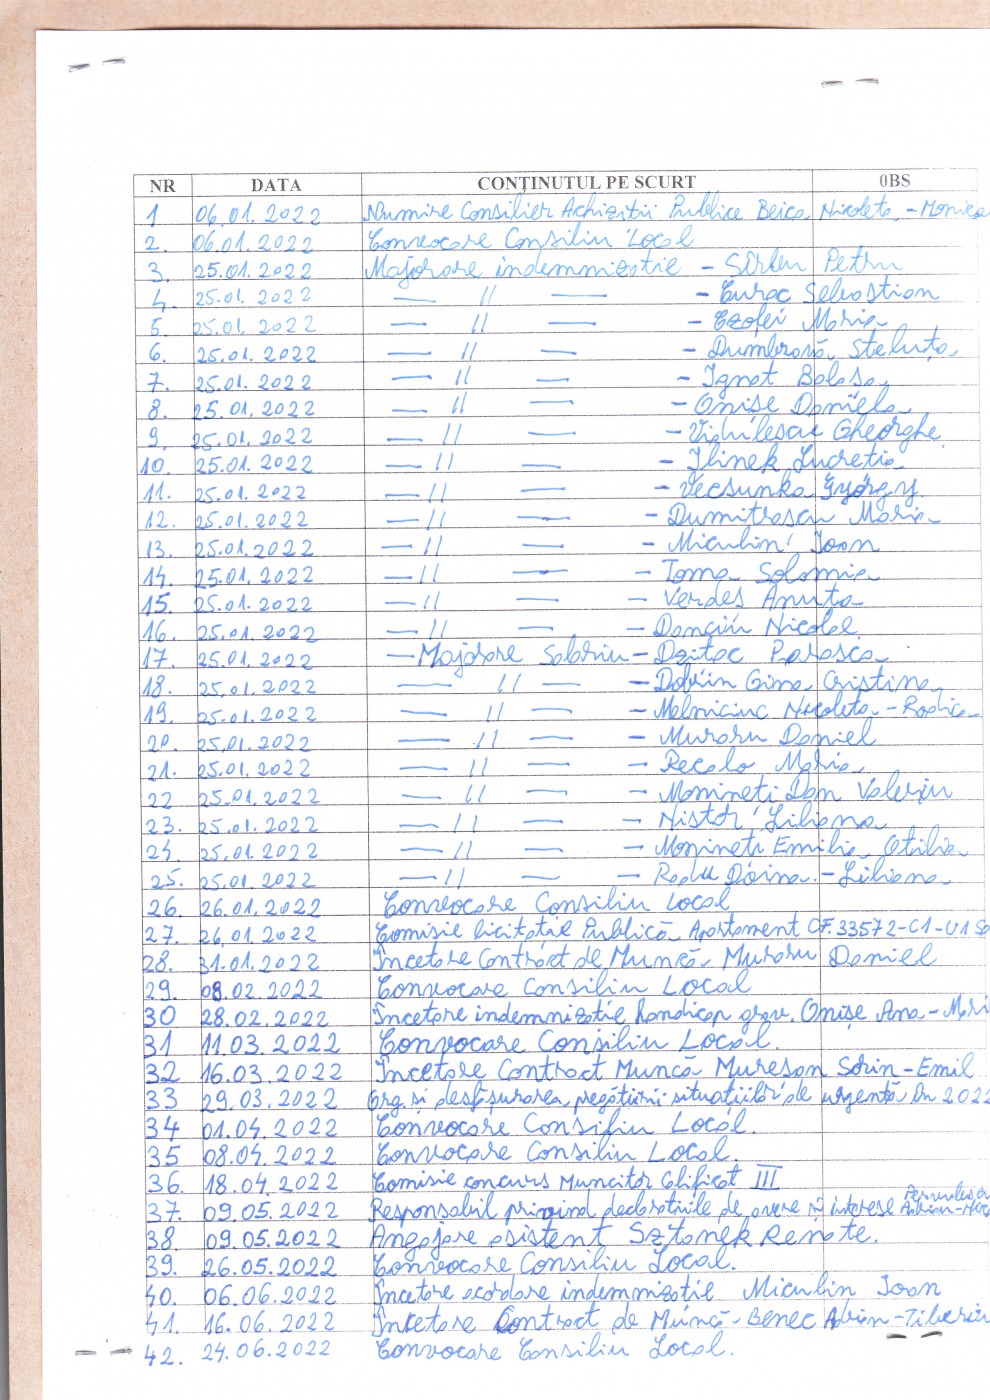 NR DATA CONȚINUTUL PE SCURT 0BS
1 06.01.2022 Numire Consilier Achiziții Publice Beica Nicoleta - Monica
2. 06.01.2022 Convocare Consiliu Local
3. 25.01.2022 Majorare indemnizatie - Sîrbu Petru
4. 25.01.2022 — 11 — - Curac Sebastian
5. 25.01.2022 — 11 — - Czofei Maria
6. 25.01.2022 — 11 — - Dumbravă Steluța
7. 25.01.2022 — 11 — - Ignat
8. 25.01.2022 — 11 — - Onise Daniela
9. 25.01.2022 — 11 — - Gheorghe
10. 25.01.2022 — 11 — - Ilinek Lucretia
11. 25.01.2022 — 11 — - Vecsunka György
12. 25.01.2022 — 11 — - Dumitrascu Maria
13. 25.01.2022 — 11 — - Miculin Ioan
14. 25.01.2022 — 11 — - Toma Solomia
15. 25.01.2022 — 11 — - Verdes Anuta
16. 25.01.2022 — 11 — - Danciu Nicolae
17. 25.01.2022 — Majorare Salariu - Dzitac Parasca
18. 25.01.2022 — 11 — - Gina Cristina
19. 25.01.2022 — 11 — - Melniciuc Nicoleta - Rodica
20. 25.01.2022 — 11 — - Muraru Daniel
21. 25.01.2022 — 11 — - Recalo Maria
22 25.01.2022 — 11 — - Momineti Dan Valeriu
23. 25.01.2022 — 11 — - Nistor Liliana
24. 25.01.2022 — 11 — - Momineti Emilia Otilia
25. 25.01.2022 — 11 — - Radu Doina - Liliana
26. 26.01.2022 Convocare Consiliu Local
27. 26.01.2022 Comisie licitatie Publică Apartament CF.33572-C1-U1
28. 31.01.2022 Încetare Contract de Muncă Muraru Daniel
29. 08.02.2022 Convocare Consiliu Local
30 28.02.2022 Încetare indemnizatie handicap grav. Onișe Ana - Mari
31 11.03.2022 Convocare Consiliu Local.
32 16.03.2022 Încetare Contract Muncă Muresan Sorin - Emil
33 29.03.2022 Org. și desfășurarea pregătirii situațiilor de urgență în 2022
34 01.04.2022 Convocare Consiliu Local.
35 08.04.2022 Convocare Consiliu Local.
36. 18.04.2022 Comisie concurs Muncitor Clificat III
37. 09.05.2022 Responsabil privind declaratiile de avere si interese
38 09.05.2022 Angajare asistent Sztanek Renate.
39. 26.05.2022 Convocare Consiliu Local.
40. 06.06.2022 Încetare acordare indemnizatie Miculin Ioan
41. 16.06.2022 Încetare Contract de Muncă - Benec Adrian - Tiberiu
42. 24.06.2022 Convocare Consiliu Local.